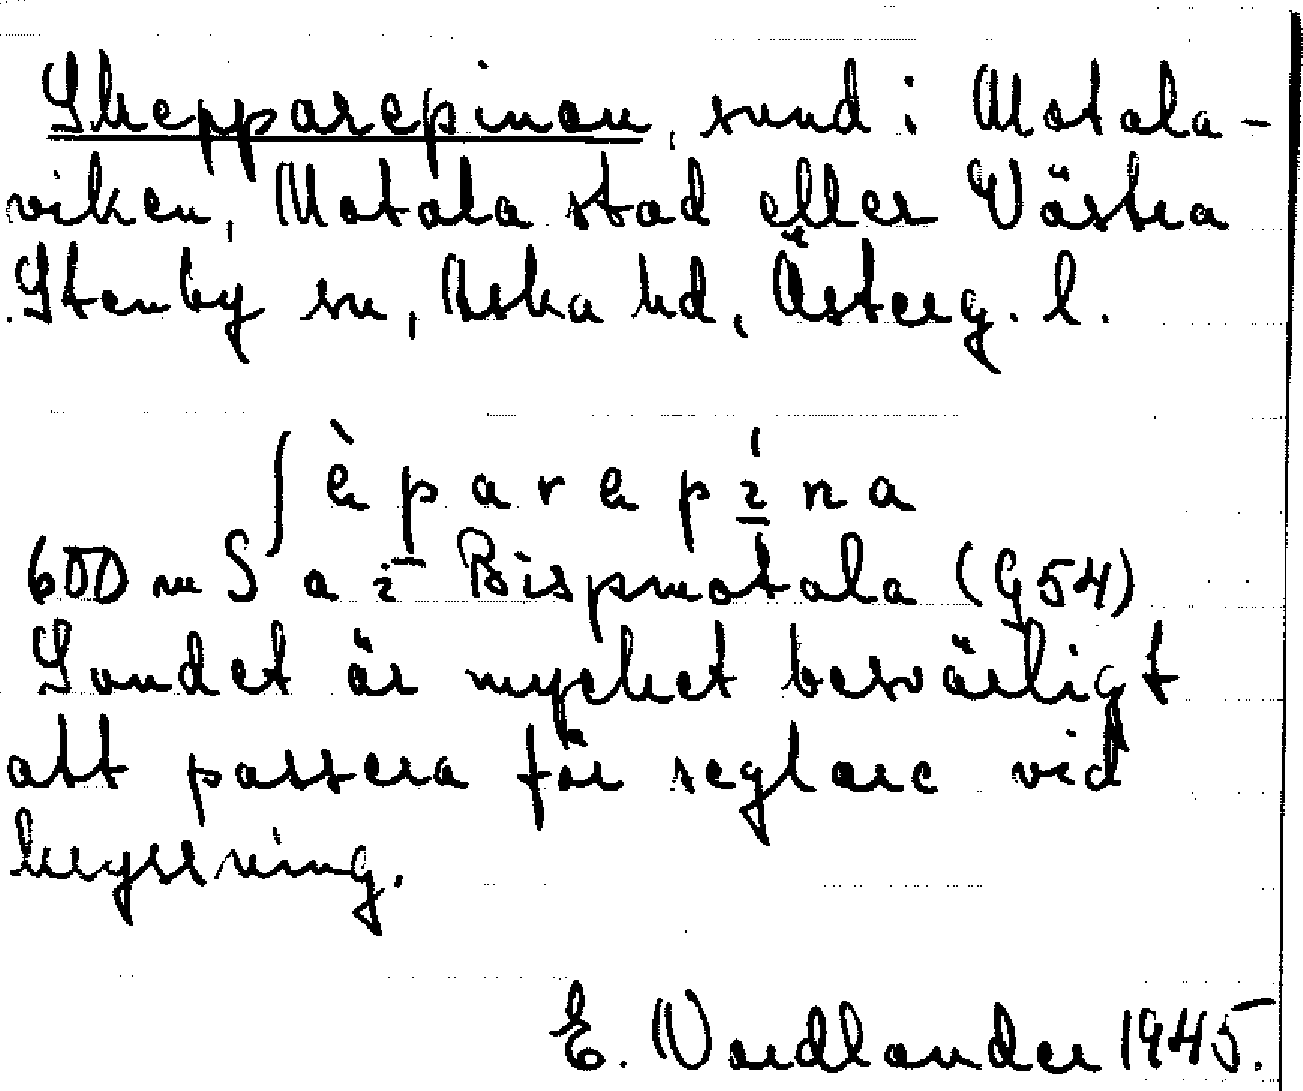 Skepparepinan, sund i Motala-
viken, Motala stad eller Västra
Stenby sn, Aska hd, Österg. l.
ʃèparepína
600 m S a i Bispmotala (G54)
Sundet är mycket besvärligt
att passera för seglare vid
kryssning.
E. Nordlander 1945.